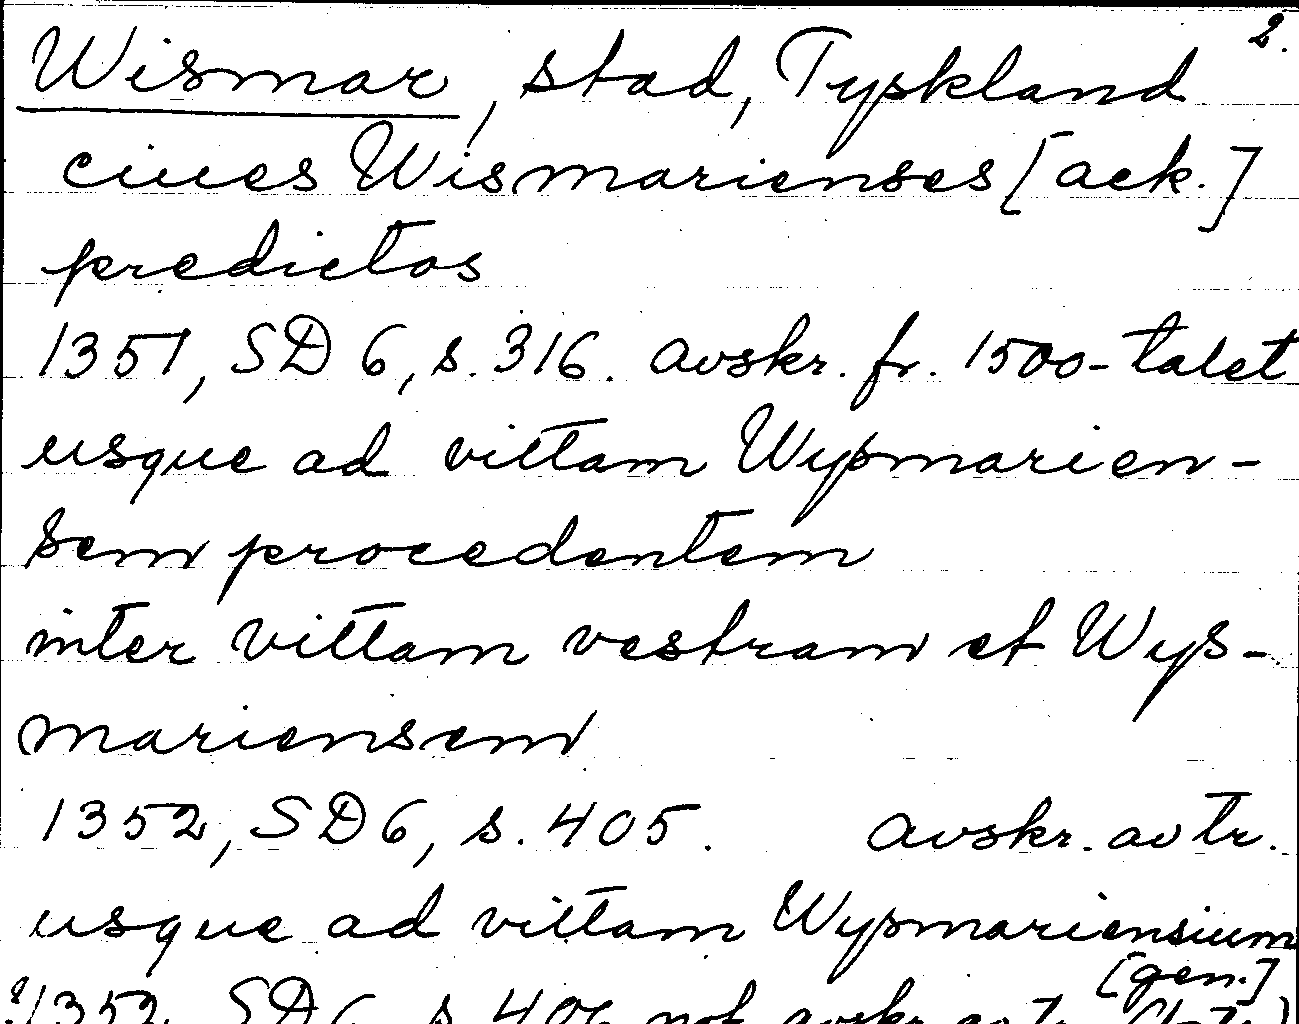 2.
Wismar, stad, Tyskland
ciues Wismarienses [ack.]
predictos
1351, SD 6, s. 316. avskr. fr. 1500-talet
usque ad vittam Wysmarien-
sem procedentem
inter vittam vestram et Wys-
mariensem
1352, SD 6, s. 405. avskr. av tr.
usque ad vittam Wysmariensium
[gen.]
1352 SD 6 s. 406 not avskr. av tr.